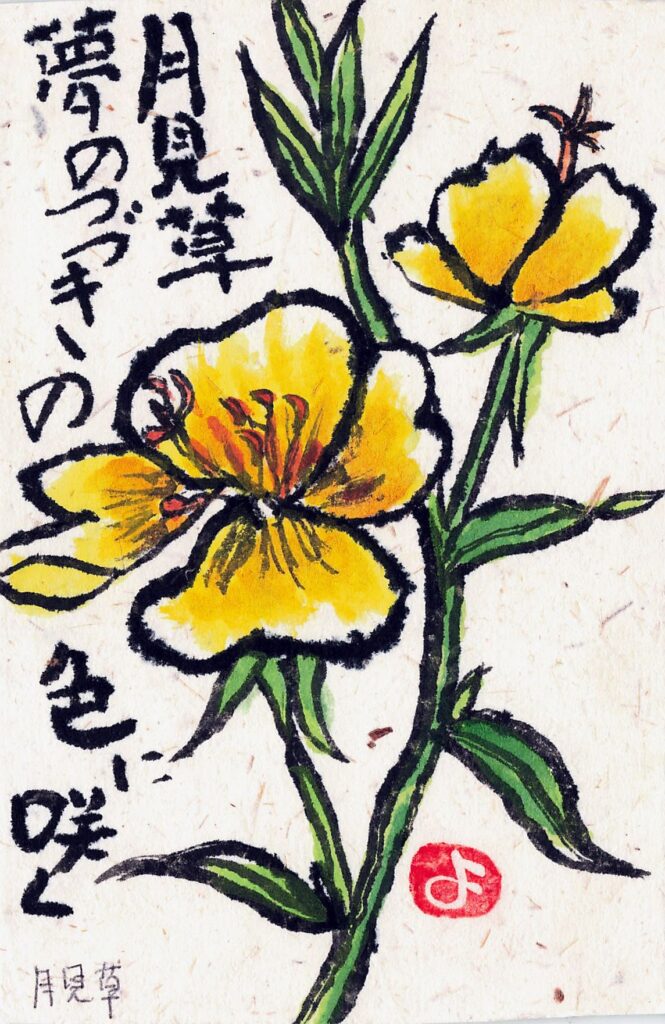 月見草
夢のつづきの
色に
咲く
よ
月見草